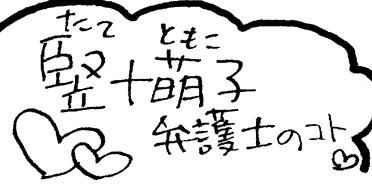 たて ともこ
竪十萌子
弁護士のコト